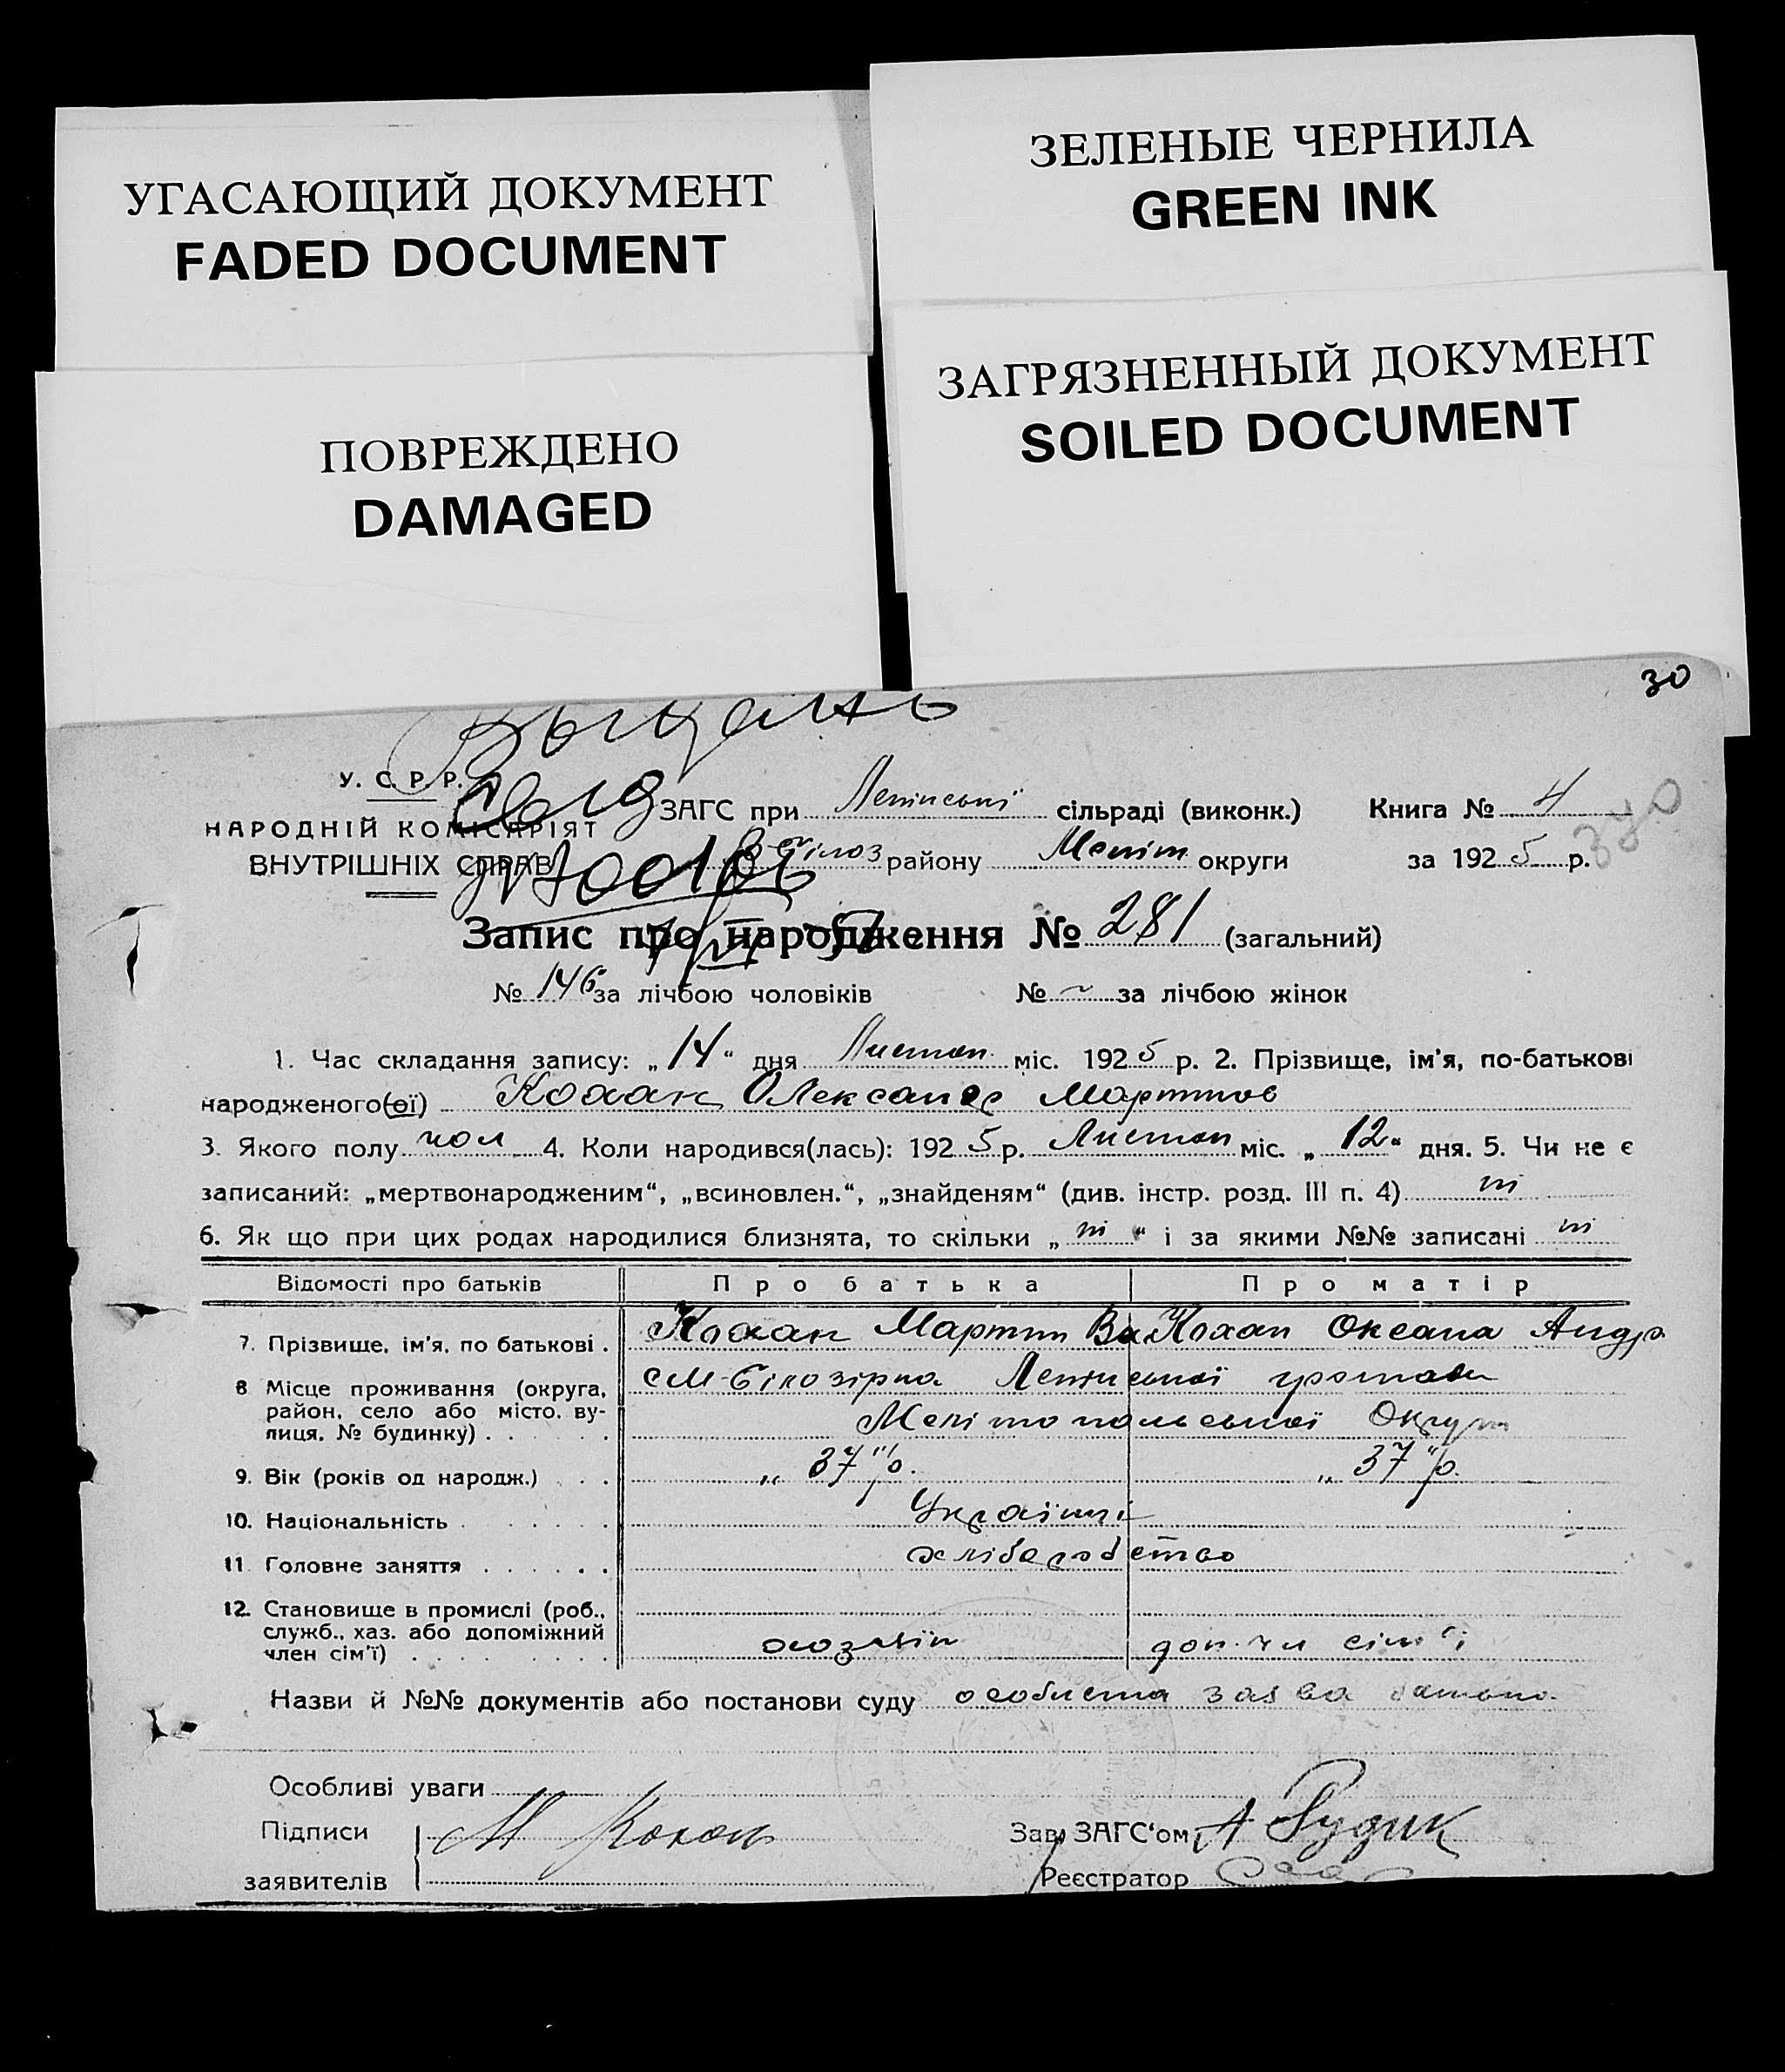 УГАСАЮЩИЙ ДОКУМЕНТ
FADED DOCUMENT
ЗЕЛЕНЫЕ ЧЕРНИЛА
GREEN INK
ПОВРЕЖДЕНО
DAMAGED
ЗАГРЯЗНЕННЫЙ ДОКУМЕНТ
SOILED DOCUMENT
30
У. С. Р. Р.
НАРОДНІЙ КОМІСАРІЯТ
ВНУТРІШНІХ СПРАВ
ЗАГС при Ленінські сільраді (виконк.) Книга № 4
району Меліт округи за 1925 р.
340
Запис про народження № 281 (загальний)
№ 146 за лічбою чоловіків № ~ за лічбою жінок
1. Час складання запису: „14“ дня Листоп. міс. 1925 р. 2. Прізвище, ім'я, по-батькові
народженого(ої) Кохан Олександ Мартинов
3. Якого полу чол 4. Коли народився(лась): 1925 р. Листоп міс. „12“ дня. 5. Чи не є
записаний: „мертвонародженим“, „всиновлен.“, „знайденям“ (див. інстр. розд. III п. 4) ні
6. Як що при цих родах народилися близнята, то скільки „ні“ і за якими №№ записані ні
Відомості про батьків Про батька Про матір
7. Прізвище, ім'я, по батькові . Кохан Мартин Ва Кохан Оксана Андр
8 Місце проживання (округа, район, село або місто, вулиця, № будинку) . см-Білозірка Ленінської громади
Мелітопольської Округи
9. Вік (років од народж.) . . . „37“ р. „37“ р.
10. Національність . Українці
11. Головне заняття . . . . . . хліборобство
12. Становище в промислі (роб., служб., хаз. або допоміжний член сім'ї) . хозяїн доп. чл сім'ї
Назви й №№ документів або постанови суду особиста заява батька
Особливі уваги
Підписи заявителів М Кохан
Зав. ЗАГС'ом А Рудик
Реєстратор